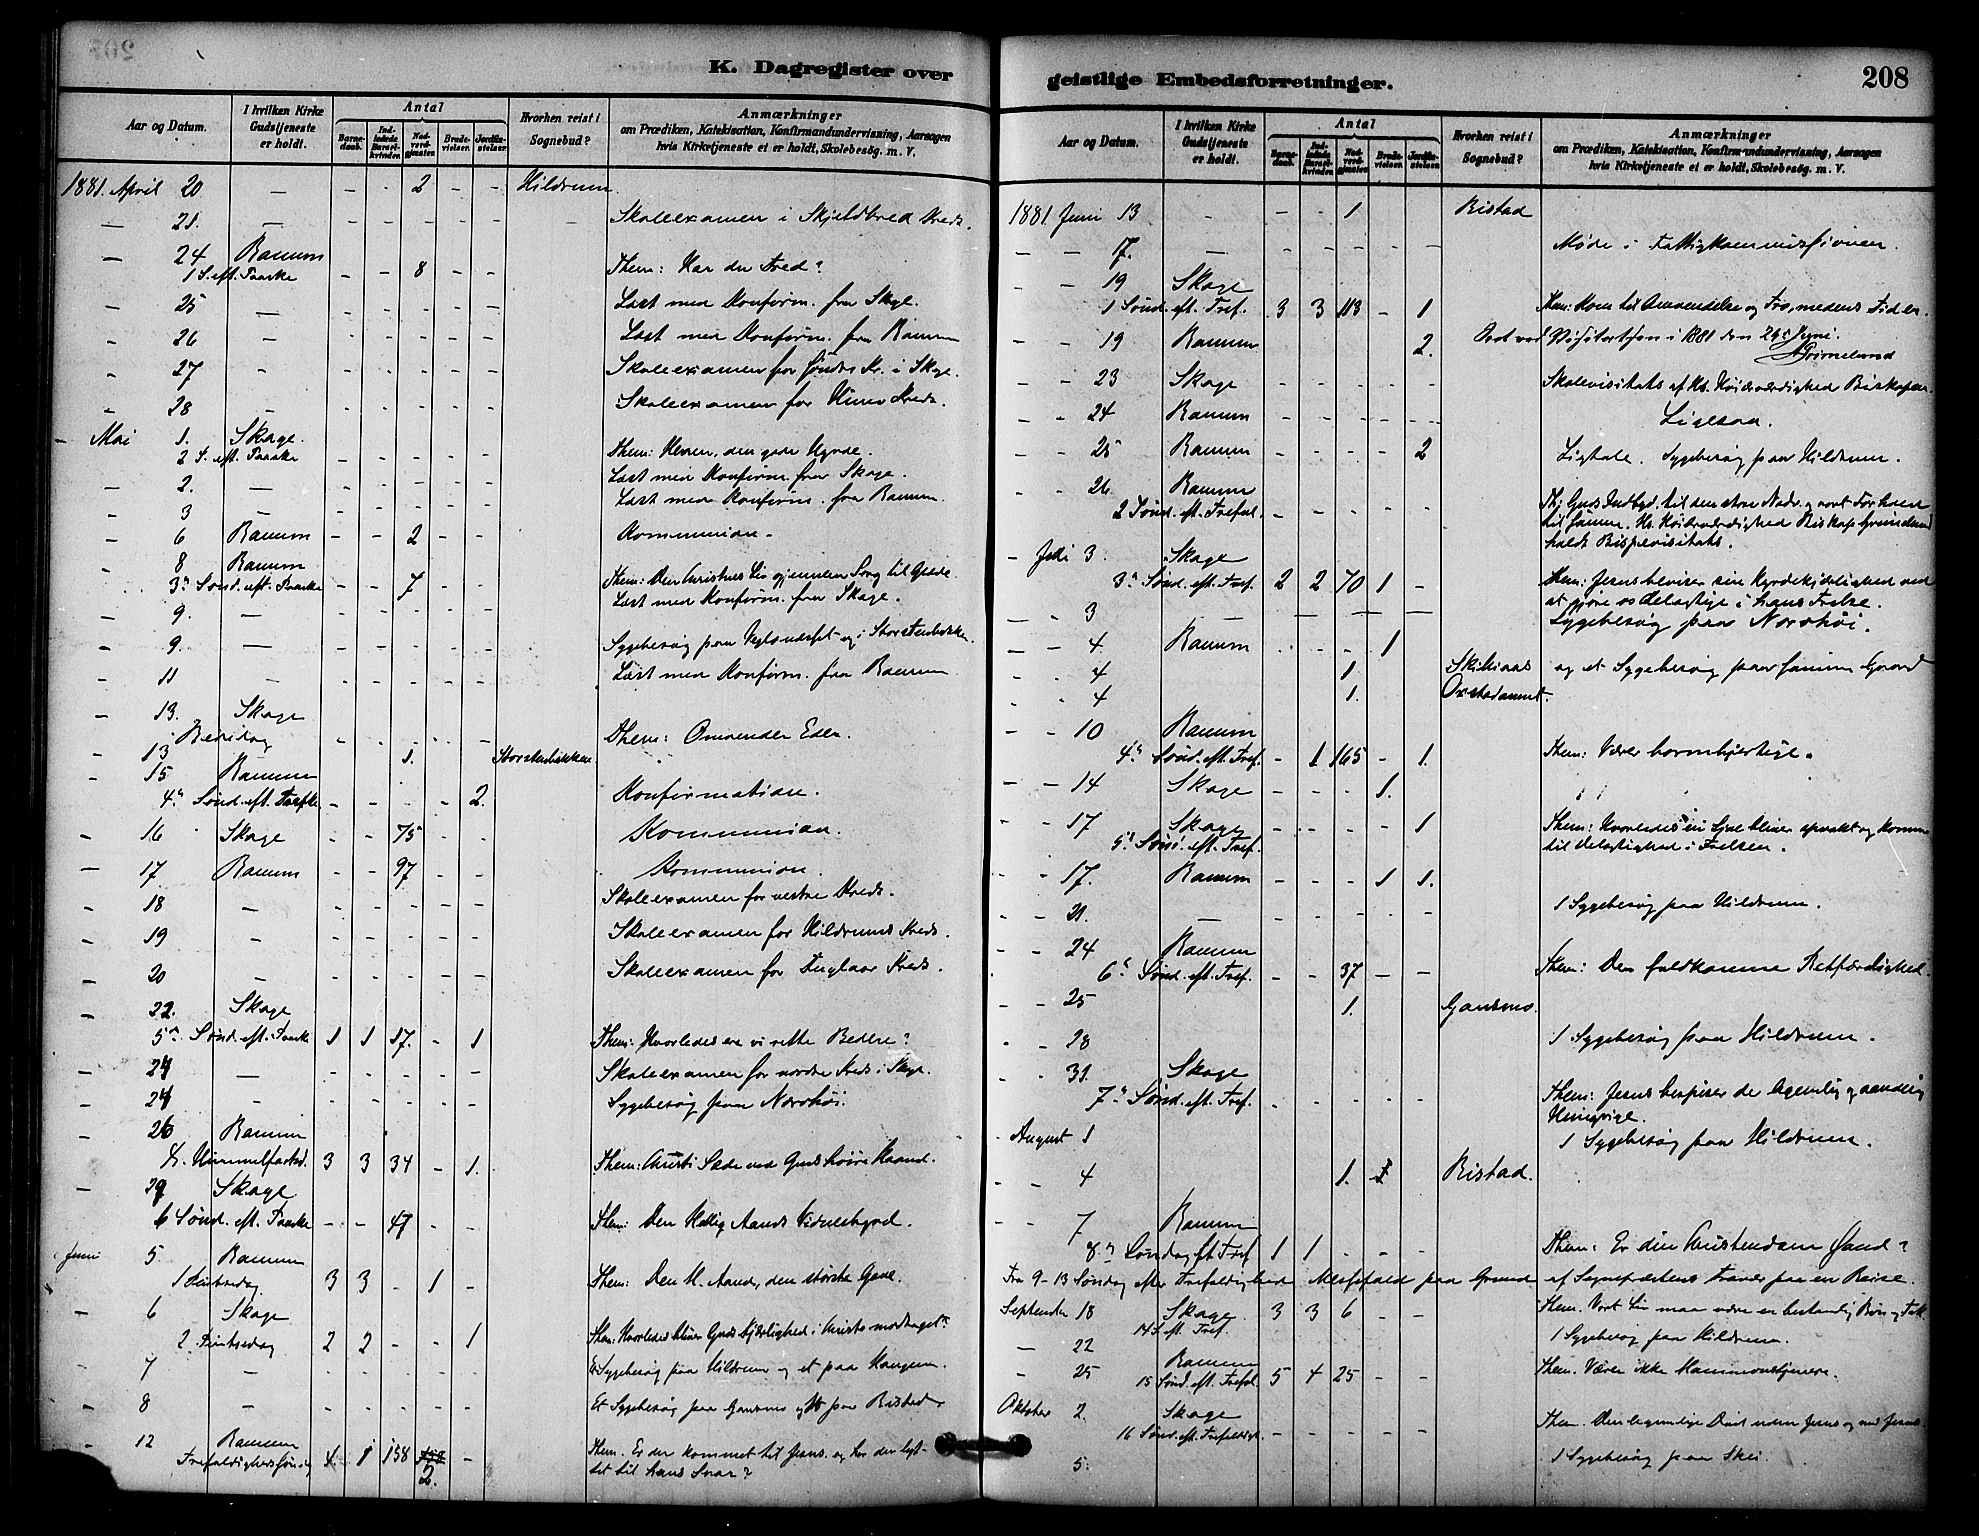 K. Dagregister over
Aar og Datum.
I hvilken Kirke Gudstjeneste er holdt.
Antal
Barne-daab.
Ind-ledede Barsel-kvinder.
Nad-verd-gjester.
Brude-vielser.
Jordfæ-stelser.
Hvorhen reist i Sognebud?
Anmærkninger
om Prædiken, Katekisation, Konfirmandundervisning, Aarsagen
hvis Kirketjeneste ei er holdt, Skolebesøg. m. V.
1881. April 20 — - - - 2 - - Hildrum
— 21. — Skoleexamen i Skjeldbred Kreds.
— 24 Ranum
1 S. eft. Paaske - - 8 - - Them: Har du Fred?
- 25 — Læst med Konfirm. fra Skage.
- 26 - Læst med Konfirm. fra Ranum
- 27 - Skoleexamen for søndre Kr. i Skage.
- 28 - Skoleexamen for Kreds.
- Mai 1. Skage.
2 S. eft. Paaske Them: Herren, den gode Hyrde.
- 2. — Læst med Konfirm. fra Skage.
- 3 — Læst med Konfirm. fra Ranum.
- 6 Ranum - - 2 - - Kommunion.
8 Ranum
3die Sønd. eft. Paaske - - 7 - - Them: Den Christnes Liv gjennem Sorg til Glæde.
- 9. — Læst med Konfirm. fra Skage.
- 9 — Sygebesøg paa og i Storstenbakken.
- 11 — Læst med Konfirm. fra Ranum
- 13. Skage
Bededag Them: Omvender Eder.
- 13 1. Storstenbakken
- 15 Ranum
4de Sønd. eft. Paaske - - - - 2. Konfirmation.
- 16 Skage - - 75 - - Kommunion.
- 17 Ranum - - 97 - - Kommunion.
- 18 — Skoleexamen for vestre Kreds.
- 19 - Skoleexamen for Hildrums Kreds.
- 20 - Skoleexamen for Kreds.
- 22. Skage
5te Sønd. eft. Paaske 1 1 17. - 1 Them: Hvorledes ere vi rette Bedere?
- 24 — Skoleexamen for nordre Kreds i Skage.
- 24 - Sygebesøg paa Nordhøi.
- 26 Ranum
Kr. Himmelfartsd. 3 3 34 - 1. Them: Christi Sæde ved Guds høire Haand.
- 29 Skage
6 Sønd. eft. Paaske - - 47 - - Them: Den Hellig Aands Vidnesbyrd.
Juni 5. Ranum
1 Pintsedag 3 3 - 1 - Them: Den H. Aand, den største Gave.
- 6 Skage
2. Pintsedag 2 2 - - 1 Them: Hvorledes bliver Guds Kjærlighed i Christo modtaget?
- 7 — Et Sygebesøg paa Hildrum og et paa Haugum.
- 8 — Et Sygebesøg paa Gansmo og et paa Bistad.
- 12 Ranum
Trefoldighedssøndag 4 1 138 2. - Them. Er du kommet til Jesus og har du lyt-
tet til hans Svar?
geistlige Embedsforretninger.
208
Aar og Datum.
I hvilken Kirke Gudstjeneste er holdt.
Antal
Barne-daab.
Ind-ledede Barsel-kvinder.
Nad-verd-gjester.
Brude-vielser.
Jordfæ-stelser.
Hvorhen reist i Sognebud?
Anmærkninger
om Prædiken, Katekisation, Konfirmandundervisning, Aarsagen
hvis Kirketjeneste ei er holdt, Skolebesøg. m. V.
1881. Juni 13 - - - 1 Bistad
- - 17. — Møde i Fattigkommissionen.
- - 19 Skage
1 Sønd. eft. Tref. 3 3 113 - 1 Them: Kom til Omvendelse og Tro, medens Tid er.
- - 19 Ranum 2. Seet ved Visitatsen i 1881 den 26de Juni.
Grimelund
- - 23 Skage Skolevisitats af Hs. Høiærværdighed Biskopen.
- - 24 Ranum Ligesaa.
- - 25 Ranum - - - - 2 Ligtale. Sygebesøg paa Hildrum.
- - 26 Ranum
2 Sønd. eft. Trefol. Th: Guds Indbyd. til den store Nadv. og vort Forhold
til samme. Hs. Høiærværdighed Biskop Grimelund
holdt Bispevisitats.
- Juli 3. Skage
3die Sønd. eft. Tref. 2 2 70 1 - Them: Jesus beviser sin Hyrdekjærlighed ved
at gjøre os delagtige i hans Frelse.
- - 3 — Sygebesøg paa Nordhøi.
- - 4 Ranum - - - 1
- - 4 1. og et Sygebesøg paa samme Gaard
- - 4 1.
- - 10 Ranum
4de Sønd. eft. Tref. - 1 165 - 1. Them: Værer barmhjertige.
- - 14 Skage - - - 1.
- - 17 Skage - - - - 1
5te Sønd. eft. Tref. Them: Hvorledes en Sjæl bliver opvakt og kommer
til Delagtighed i Frelsen.
- - 17. Ranum - - - 1 1.
- - 21. — 1 Sygebesøg paa Hildrum.
- - 24 Ranum
6te Sønd. eft. Tref. - - 37 - - Them: Den fuldkomne Retfærdighed.
- - 25 1. Gansmo.
- - 28 1 Sygebesøg paa Hildrum.
- - 31. Skage
7de Sønd. eft. Tref. Them: Jesus bespiser de legemlig og aandelig
Hungrige.
- August 1 1 Sygebesøg paa Hildrum.
- - 4 1. Bistad.
- - 7 Ranum
8de Søndag eft. Tref 1 1 - - - Them: Er din Christendom Sand?
Fra 9-13 Søndag efter Trefoldighed Messefald paa Grund af Sognepræstens Fravær paa en Reise.
September 18 Skage 3 3 6 - - Them. Vort Liv maa være en bestandig Bøn og Tak.
14 S. eft. Tref.
- 22 1 Sygebesøg paa Hildrum.
- 25 Ranum
15 Sønd. eft. Trefol. 5 4 25 - - Them. Værer ikke Mammonstjenere.
Oktober 2. Skage
16 Sønd. eft. Trefoldigh. Them. Den legemlige Død uden Jesus og med Jesus.
5. 1 Sygebesøg paa Skei.